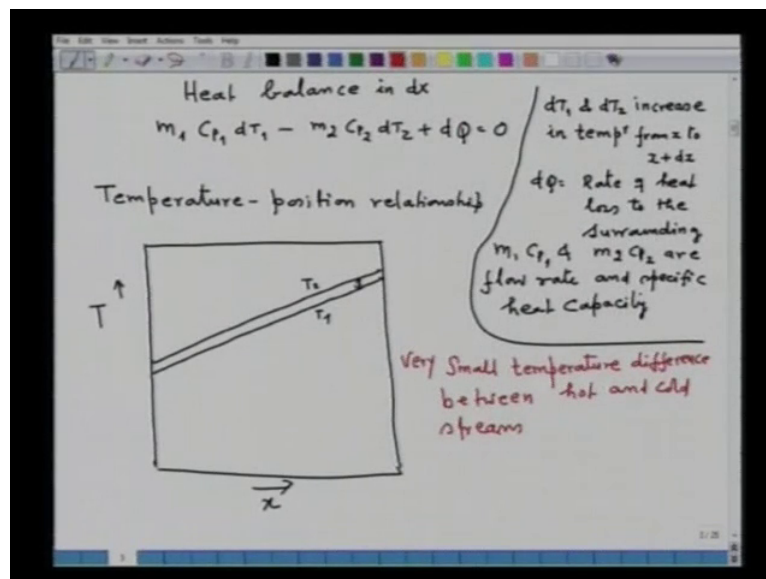 File Edit View Insert Actions Tools Help
Heat balance in dx
m1 Cp1 dT1 - m2 Cp2 dT2 + dQ = 0
Temperature - position relationship
T
T2
T1
x
dT1 & dT2 increase
in tempr from x to
x+dx
dQ: Rate of heat
loss to the
surrounding
m1 Cp1 & m2 Cp2 are
flow rate and specific
heat capacity
Very small temperature difference
between hot and cold
streams